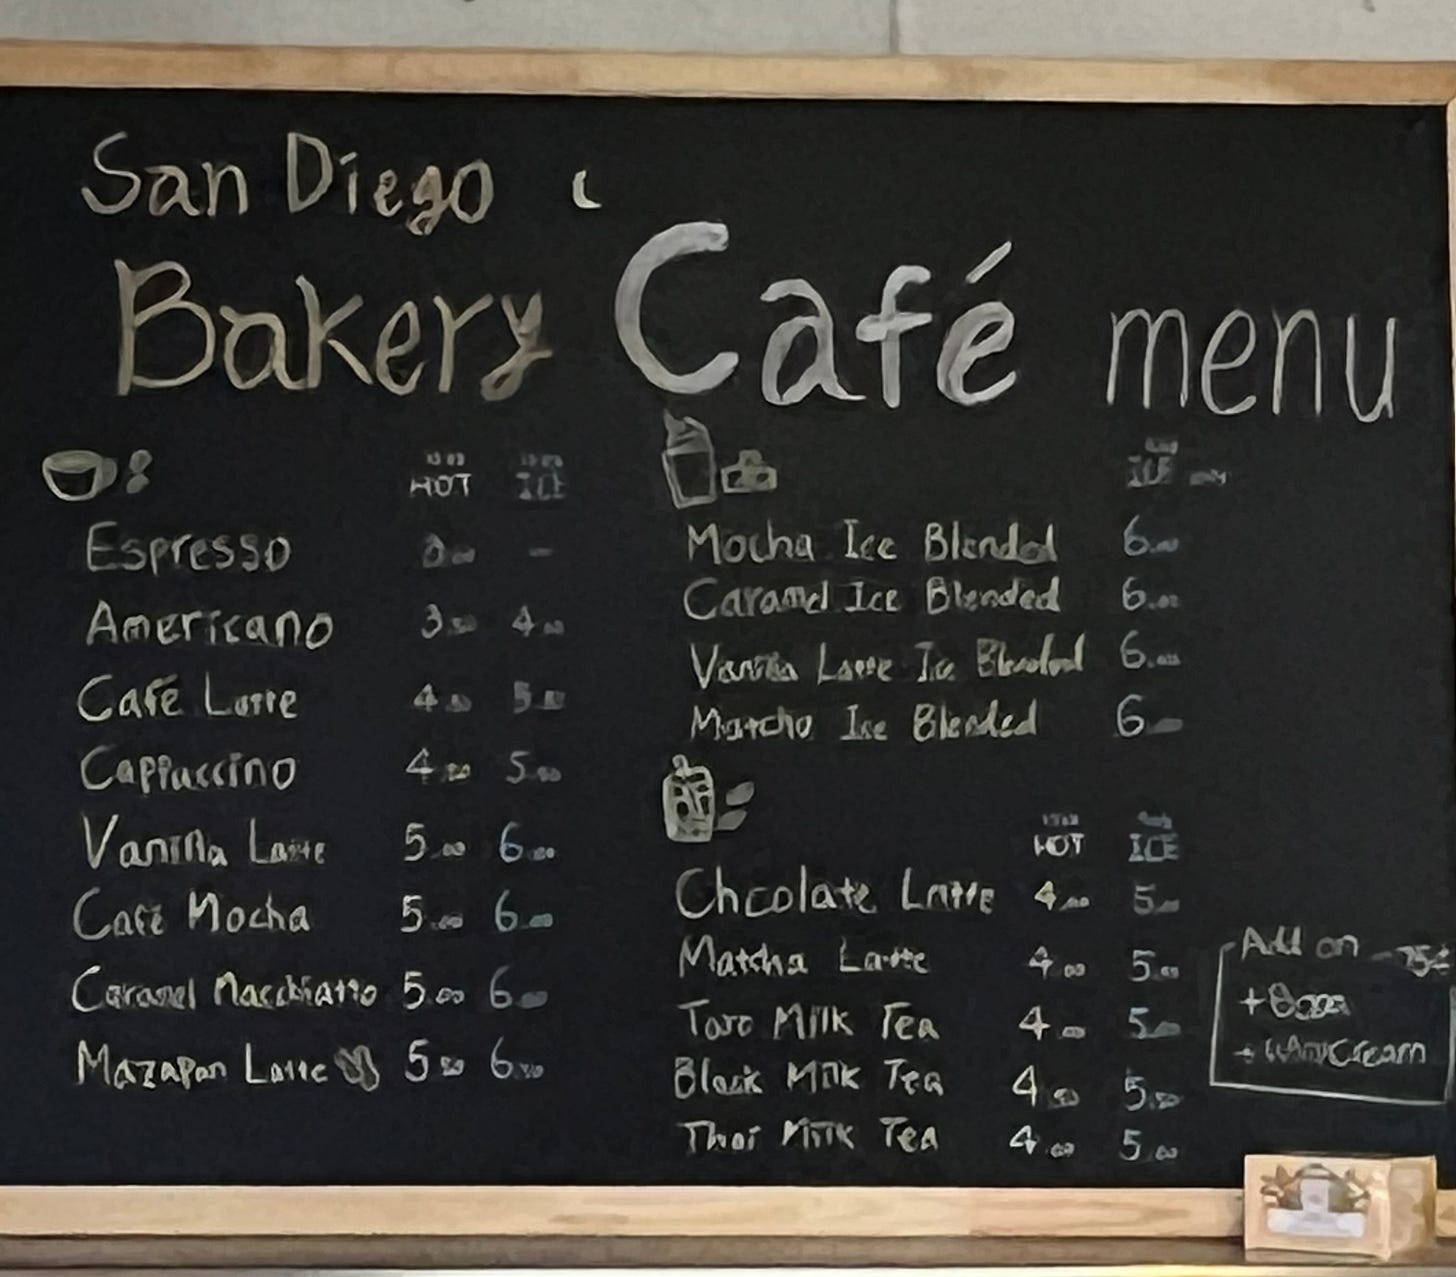 San Diego
Bakery Café menu
HOT ICE
Espresso -
Americano 3.50 4.00
Café Latte
Cappuccino
Vanilla Latte 5.00 6.00
Café Mocha 5.00 6.00
Caramel Macchiatto 5.00 6.00
Mazapan Latte 5.50 6.50
ICE only
Mocha Ice Blended 6.00
Caramel Ice Blended 6.00
Vanilla Latte Ice Blended 6.00
Matcha Ice Blended
HOT ICE
Chcolate Latte 4.00
Matcha Latte 4.00 5.00
Taro Milk Tea 4.00 5.00
Black Milk Tea
Thai Milk Tea 4.00 5.00
Add on 75¢
+
+ Cream